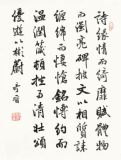 詩緣情而綺靡賦體物
而瀏亮碑披文以相質誄
纏綿而悽愴銘博約而
溫潤箴頓挫而清壯頌
優遊以彬蔚